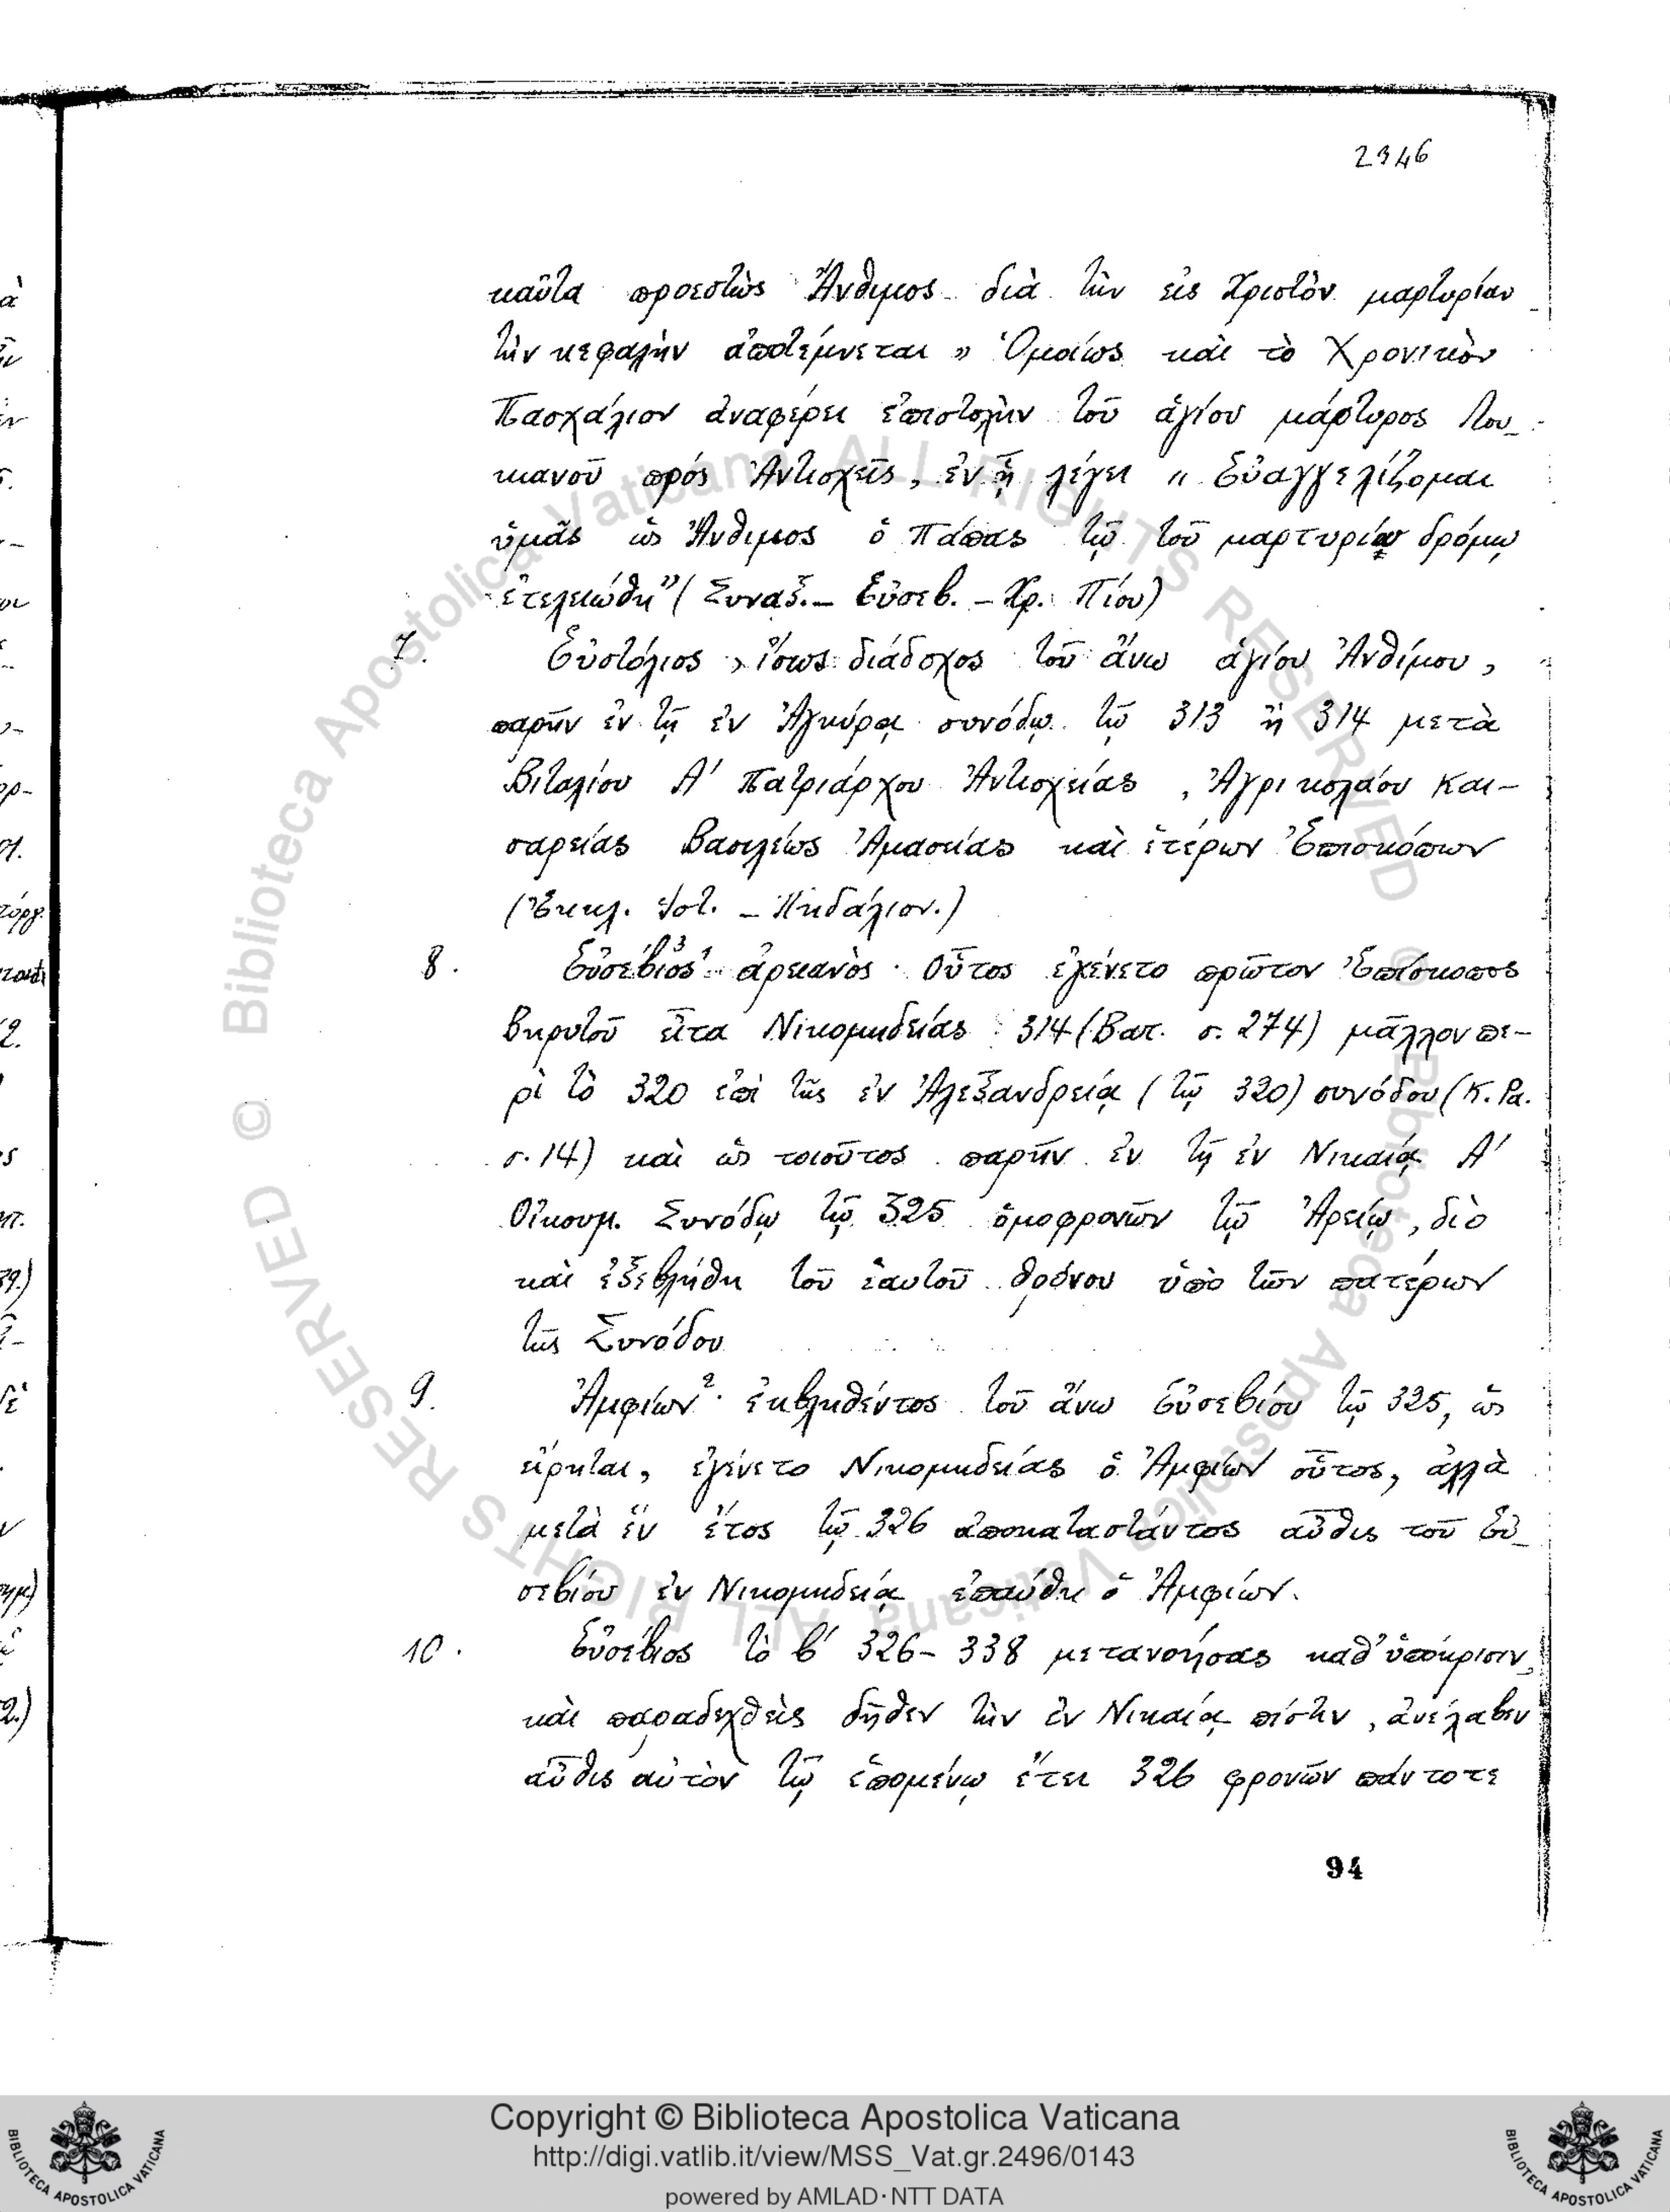 2346
καῦτα προεστὼς Ἄνθιμος διὰ τὴν εἰς Χριστὸν μαρτυρίαν
τὴν κεφαλὴν ἀποτέμνεται » Ὁμοίως καὶ τὸ Χρονικὸν
Πασχάλιον ἀναφέρει ἐπιστολὴν τοῦ ἁγίου μάρτυρος Λου-
κιανοῦ πρός Ἀντιοχεῖς, ἐν ᾗ λέγει « Εὐαγγελίζομαι
ὑμᾶς ὡς Ἄνθιμος ὁ Πάπας τῷ τοῦ μαρτυρίου δρόμῳ
ἐτελειώθη" (Συναξ.- Εὐσεβ. - Χρ. Πίου)
7. Εὐστόλιος, ἴσως διάδοχος τοῦ ἄνω ἁγίου Ἀνθίμου,
παρῆν ἐν τῇ ἐν Ἀγκύρᾳ συνόδῳ τῷ 313 ἢ 314 μετὰ
Βιταλίου Α' Πατριάρχου Ἀντιοχείας, Ἀγρικολάου Και-
σαρείας Βασιλέως Ἀμασείας καὶ ἑτέρων Ἐπισκόπων
(Ἐκκλ. Ἱστ. - Πηδάλιον.)
8. Εὐσέβιος ἀρειανὸς. Οὗτος ἐγένετο πρῶτον Ἐπίσκοπος
Βηρυτοῦ εἶτα Νικομηδείας 314 (Βατ. σ. 274) μᾶλλον πε-
ρὶ τὸ 320 ἐπὶ τῆς ἐν Ἀλεξανδρείᾳ (τῷ 320) συνόδου (Κ. Ρα.
σ. 14) καὶ ὡς τοιοῦτος παρῆν ἐν τῇ ἐν Νικαίᾳ Α'
Οἰκουμ. Συνόδῳ τῷ 325 ὁμοφρονῶν τῷ Ἀρείῳ, διὸ
καὶ ἐξεβλήθη τοῦ ἑαυτοῦ θρόνου ὑπὸ τῶν πατέρων
τῆς Συνόδου
9. Ἀμφίων². ἐκβληθέντος τοῦ ἄνω Εὐσεβίου τῷ 325, ὡς
εἴρηται, ἐγένετο Νικομηδείας ὁ Ἀμφίων οὗτος, ἀλλὰ
μετὰ ἓν ἔτος τῷ 326 ἀποκαταστάντος αὖθις τοῦ Εὐ-
σεβίου ἐν Νικομηδείᾳ ἐπαύθη ὁ Ἀμφίων.
10. Εὐσέβιος τὸ β' 326-338 μετανοήσας καθ' ὑπόκρισιν,
καὶ παραδεχθεὶς δῆθεν τὴν ἐν Νικαίᾳ πίστιν, ἀνέλαβεν
αὖθις αὐτὸν τῷ ἑπομένῳ ἔτει 326 φρονῶν πάντοτε
94
© Biblioteca Apostolica Vaticana ALL RIGHTS RESERVED
© Biblioteca Apostolica Vaticana ALL RIGHTS RESERVED
Copyright © Biblioteca Apostolica Vaticana
http://digi.vatlib.it/view/MSS_Vat.gr.2496/0143
powered by AMLAD·NTT DATA
BIBLIOTECA APOSTOLICA VATICANA
BIBLIOTECA APOSTOLICA VATICANA